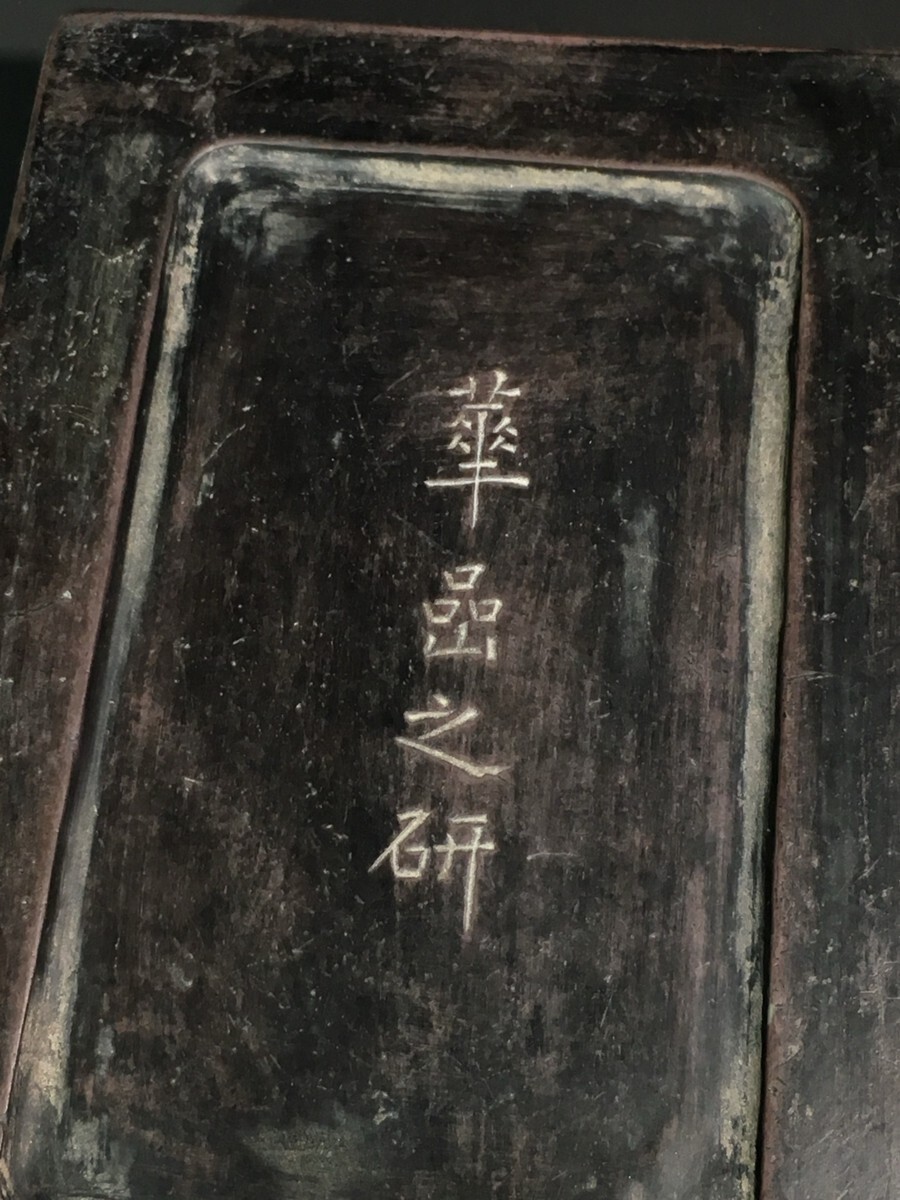 華嵒之研